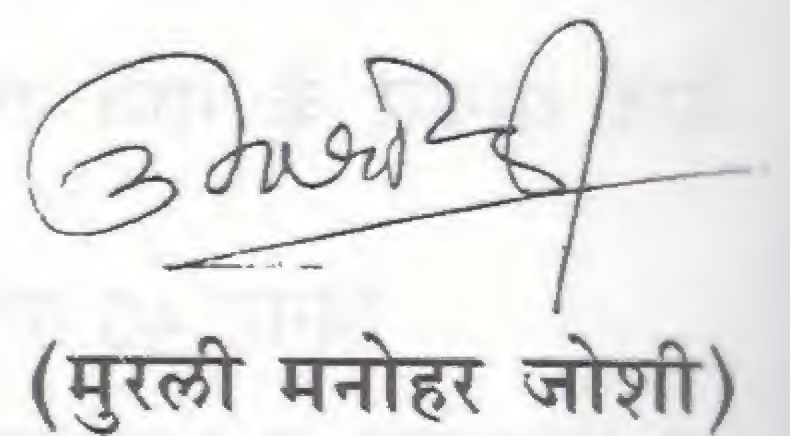 (मुरली मनोहर जोशी)